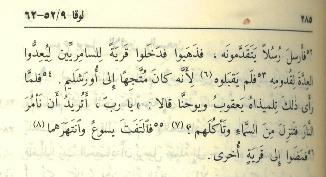 ٢٨٥ لوقا ٩/٥٢-٦٢
٥٢فأرسل رُسُلاً يَتَقَدَّمونَه، فذَهَبوا فدَخَلوا قَريَةً لِلسامِريِّين لِيُعِدُّوا
العِدَّةَ لِقُدومِه ٥٣فلَم يَقبَلوه (٦) لأَنَّه كانَ مُتَّجِهًا إلى أُورَشَليم. ٥٤فلَمَّا
رأَى ذلك تِلميذاهُ يَعقوبُ ويوحنَّا قالا: «يا ربّ، أَتُريدُ أَن نَأمُرَ
النَّارَ فتَنزِلَ مِنَ السَّماءِ وتَأكُلَهم؟ (٧) ٥٥فالتَفَتَ يسوعُ وانتَهَرَهما (٨)
٥٦فمَضَوا إِلى قَريَةٍ أُخرى.